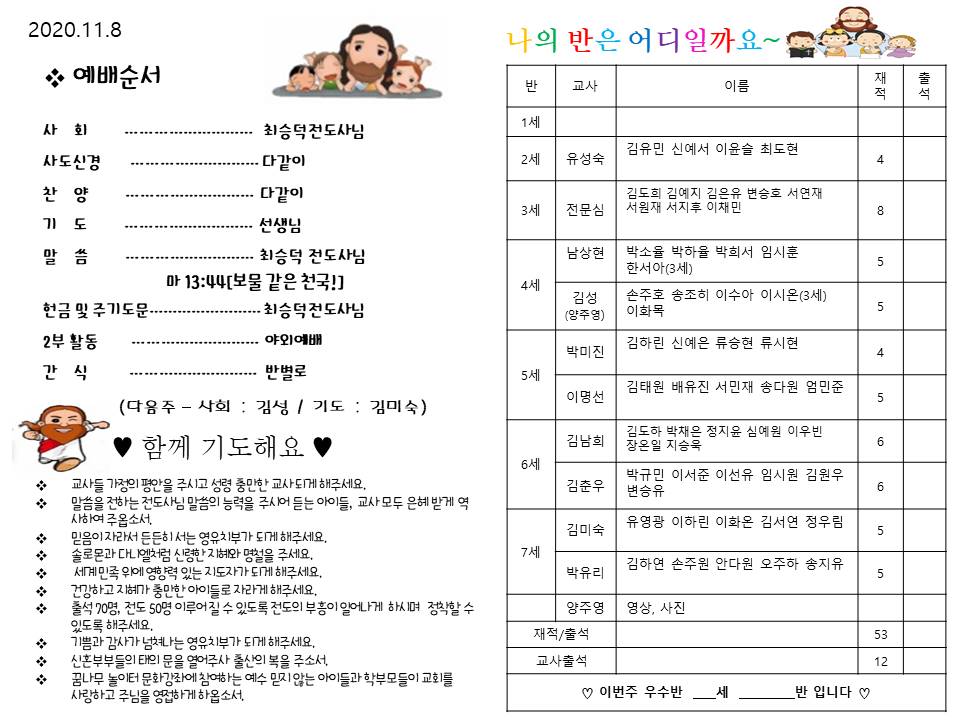 2020.11.8
❖ 예배순서
사 회 ---------------------------- 최승덕전도사님
사도신경 ---------------------------- 다같이
찬 양 ---------------------------- 다같이
기 도 ---------------------------- 선생님
말 씀 ---------------------------- 최승덕 전도사님
마 13:44[보물 같은 천국!]
헌금 및 주기도문------------------------ 최승덕전도사님
2부 활동 ---------------------------- 야외예배
간 식 ---------------------------- 반별로
(다음주 – 사회 : 김성 / 기도 : 김미숙)
♥ 함께 기도해요 ♥
❖ 교사들 가정의 평안을 주시고 성령 충만한 교사되게 해주세요.
❖ 말씀을 전하는 전도사님 말씀의 능력을 주시어 듣는 아이들, 교사 모두 은혜 받게 역
사하여 주옵소서.
❖ 믿음이 자라서 든든히 서는 영유치부가 되게 해주세요.
❖ 솔로몬과 다니엘처럼 신령한 지혜와 명철을 주세요.
❖ 세계 민족 위에 영향력 있는 지도자가 되게 해주세요.
❖ 건강하고 지혜가 충만한 아이들로 자라게 해주세요.
❖ 출석 70명, 전도 50명 이루어질 수 있도록 전도의 부흥이 일어나게 하시며 정착할 수
있도록 해주세요.
❖ 기쁨과 감사가 넘쳐나는 영유치부가 되게 해주세요.
❖ 신혼부부들의 태의 문을 열어주사 출산의 복을 주소서.
❖ 꿈나무 놀이터 문화강좌에 참여하는 예수 믿지 않는 아이들과 학부모들이 교회를
사랑하고 주님을 영접하게 하옵소서.
나의 반은 어디일까요~
반 교사 이름 재적 출석
1세
2세 유성숙 김유민 신예서 이윤슬 최도현 4
3세 전문심 김도희 김예지 김은유 변승호 서연재
서원재 서지후 이채민 8
4세 남상현 박소율 박하율 박희서 임시훈
한서아(3세) 5
김성
(양주영) 손주호 송조히 이수아 이시온(3세)
이화목 5
5세 박미진 김하린 신예은 류승현 류시현 4
이명선 김태원 배유진 서민재 송다원 엄민준 5
6세 김남희 김도하 박채은 정지윤 심예원 이우빈
장온일 지승욱 6
김춘우 박규민 이서준 이선유 임시원 김원우
변승유 6
7세 김미숙 유영광 이하린 이화온 김서연 정우림 5
박유리 김하연 손주원 안다원 오주하 송지유 5
양주영 영상, 사진
재적/출석 53
교사출석 12
♡ 이번주 우수반 ___세 ________반 입니다 ♡